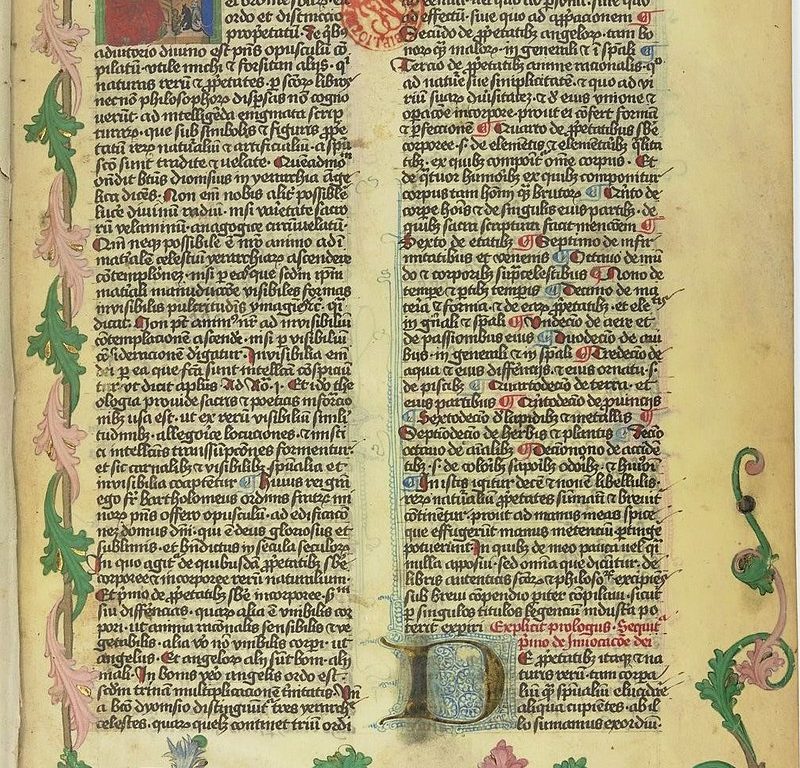 ordo et distinctio
proprietatū. De qb9
adiutorio diuino est pñs opusculū cō
pilatū. vtile michi & forsitan alijs. qͥ
naturas rerū & ꝓpetates. ꝑ scōꝝ libros
necnō philosophoꝝ dispsas nō cogno
uerūt. ad intelligēda enigmata scrip
turaꝝ. que sub simbolis & figuris ꝓpe
tatū reꝝ naturaliū & artificialiū. a spū
scō sunt tradite & uelate. Quēadmoᵐ
ondit btūs dionisius in yerarchia āge
lica dicēs. Non em̄ nobis alit̄ possibile
luce diuinū radiū. nisi varietate sacro
rū velaminū. anagogice circūuelatū.
Qm̄ neqꝫ possibile ē nr̄o animo ad ī
matialē celestiū yerarchiaꝝ ascendere
cōtemplōneꝫ. nisi ꝑ eā que scdm̄ ip̄m
matiali manuductōe visibiles formas
inuisibilis pulcritudīs ymagīet̄. qͥ
dicat. Non pt̄ animꝰ nr̄ ad inuisibiliū
cōtemplacionē ascende. nisi ꝑ visibiliū
cōsideracionē dirigatur. Inuisibilia em̄
dei ꝑ ea que fctā sunt intellcā conspiciū
tur. vt dicit aplūs Ad Ro. i. Et iō the
ologia prouide sacris & poeticis informacio
nibꝫ vsa est. ut ex rerū visibiliū simili
tudinibꝫ. allegorice locuciones. & misti
ci intellectus transsūpcōnes formentur.
et sic carnalibꝫ & visibilibꝫ spūalia et
inuisibilia coaptentur ¶ Huius rei grā
ego fr̄ Bartholomeus ordinis fratꝝ mi
noꝝ pn̄s offero opusculū. ad edificatō
neꝫ domus dnī. qui ē deus gloriosus et
sublimis. et bn̄dictus in secula seculoꝝ
In quo agit̄ de quibusdā ꝓpetatibꝫ sbē
corporee & incorporee rerū naturalium.
Et pͥmo de ꝓpetatibꝫ sbē incorporee. sᵐ
sui differēcias. quaꝝ alia ē vnibilis cor
pori. ut anima racionalis sensibilis & ve
getabilis. alia vo nō vnibilis corpi. ut
angelus. Et angeloꝝ alij sūt boni. alij
mali. In bonis veo angelis ordo est.
scdm̄ trinā multiplicacionē tⁱnitatis. Qm̄
a btō dyonisio distinguūt̄ tres yerarchie
celestes. quaꝝ quelꝫ continet triū ordī
effectū. siue quo ad appacionem ¶
Secūdo de ꝓpetatibꝫ angeloꝝ. tam bo
noꝝ qͣꝫ maloꝝ. in generali & ī spāli ¶
Tercio de ꝓpetatibꝫ anime racionalis. qͦ
ad nature sue simplicitatē. & quo ad vi
riū suaꝝ diuisitateꝫ. & d̄ eius vnione &
opacōe incorpore. prout ei cōfert formā
& ꝑfectionē ¶ Quarto de ꝓpetatibus sbē
corporee. s. de elemetis & elemetaribꝫ qͣlita
tibꝫ. ex quibꝫ componit̄ om̄e corpus. Et
de qͣtuor humoribꝫ ex quibꝫ componuntur
corpus tam hoīm qͣꝫ brutoꝝ ¶ Quīto de
corpe hoīs & de singulis eius partibꝫ. de
quibꝫ sacra scriptura facit mencōem ¶
Sexto de etatibꝫ ¶ Septimo de infir
mitatibus et venenis ¶ Octauo de mū
do & corporibꝫ suꝑcelestibus ¶ Nono de
tempe & ꝑtibꝫ tempis ¶ Decimo de ma
teria & forma. & de eaꝝ ꝓpetatibꝫ. et eletⁱˢ
in gn̄ali & spāli ¶ Vndecīo de aere et
de passionibus eius ¶ Duodecīo de aui
bus. in generali & in spāli ¶ Tredecīo de
aqua & eius differētijs. & eius ornatu. s.
de piscibꝫ ¶ Quartodecīo de terra. et
eius partibus ¶ Quītodecīo de prouincijs
¶ Sextodecīo d̄ lapidibꝫ & metallis ¶
Septiōdecīo de herbis & plantis ¶ Decīo
octauo de aīalibꝫ. ¶ Deciōnono de accidē
tibꝫ. s. de coloribꝫ saporibꝫ odoribꝫ. & liquoribꝫ
¶ In istis igitur decē & nouē libellulis.
reꝝ naturaliū ꝓpetates sūmatī & breuit̄
cōtinent̄. prout ad manus meas spice
que effugerūt manus metenciū ꝑtinge
potuerūt. In quibꝫ de meo pauca vel qͣ
nulla apposui. sed om̄ia que dicūtur. de
libris autenticis scōꝝ & philosoꝝ excipiēs
sub breui cōpendio piter cōpilaui. sicut
ꝑ singulos titulos legencium industia po
terit expiri Explicit prologus. Sequit̄
pͥmo de īuocacōe dei
DE ꝓpetatibꝫ itaqꝫ & na
turis rerū. tam corpa
liū qͣꝫ spūaliū elucidare
aliqua cupientes. ab il
lo sumamus exordiū.